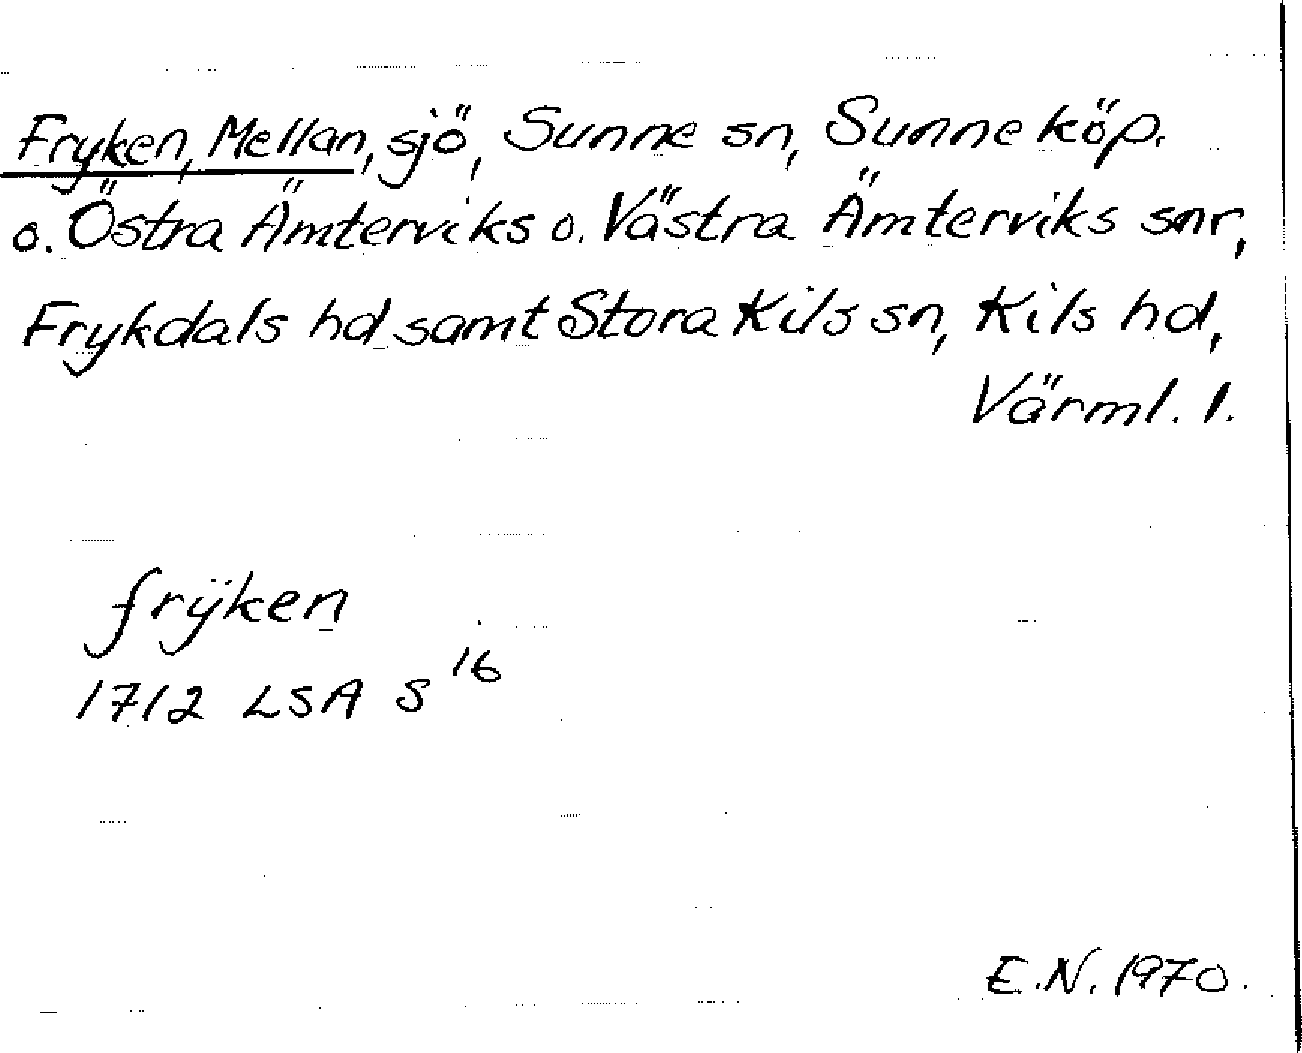 Fryken, Mellan, sjö, Sunne sn, Sunne köp.
o. Östra Ämterviks o. Västra Ämterviks snr,
Frykdals hd samt Stora Kils sn, Kils hd,
Värml. l.
frÿken
1712 LSA S 16
E.N. 1970.